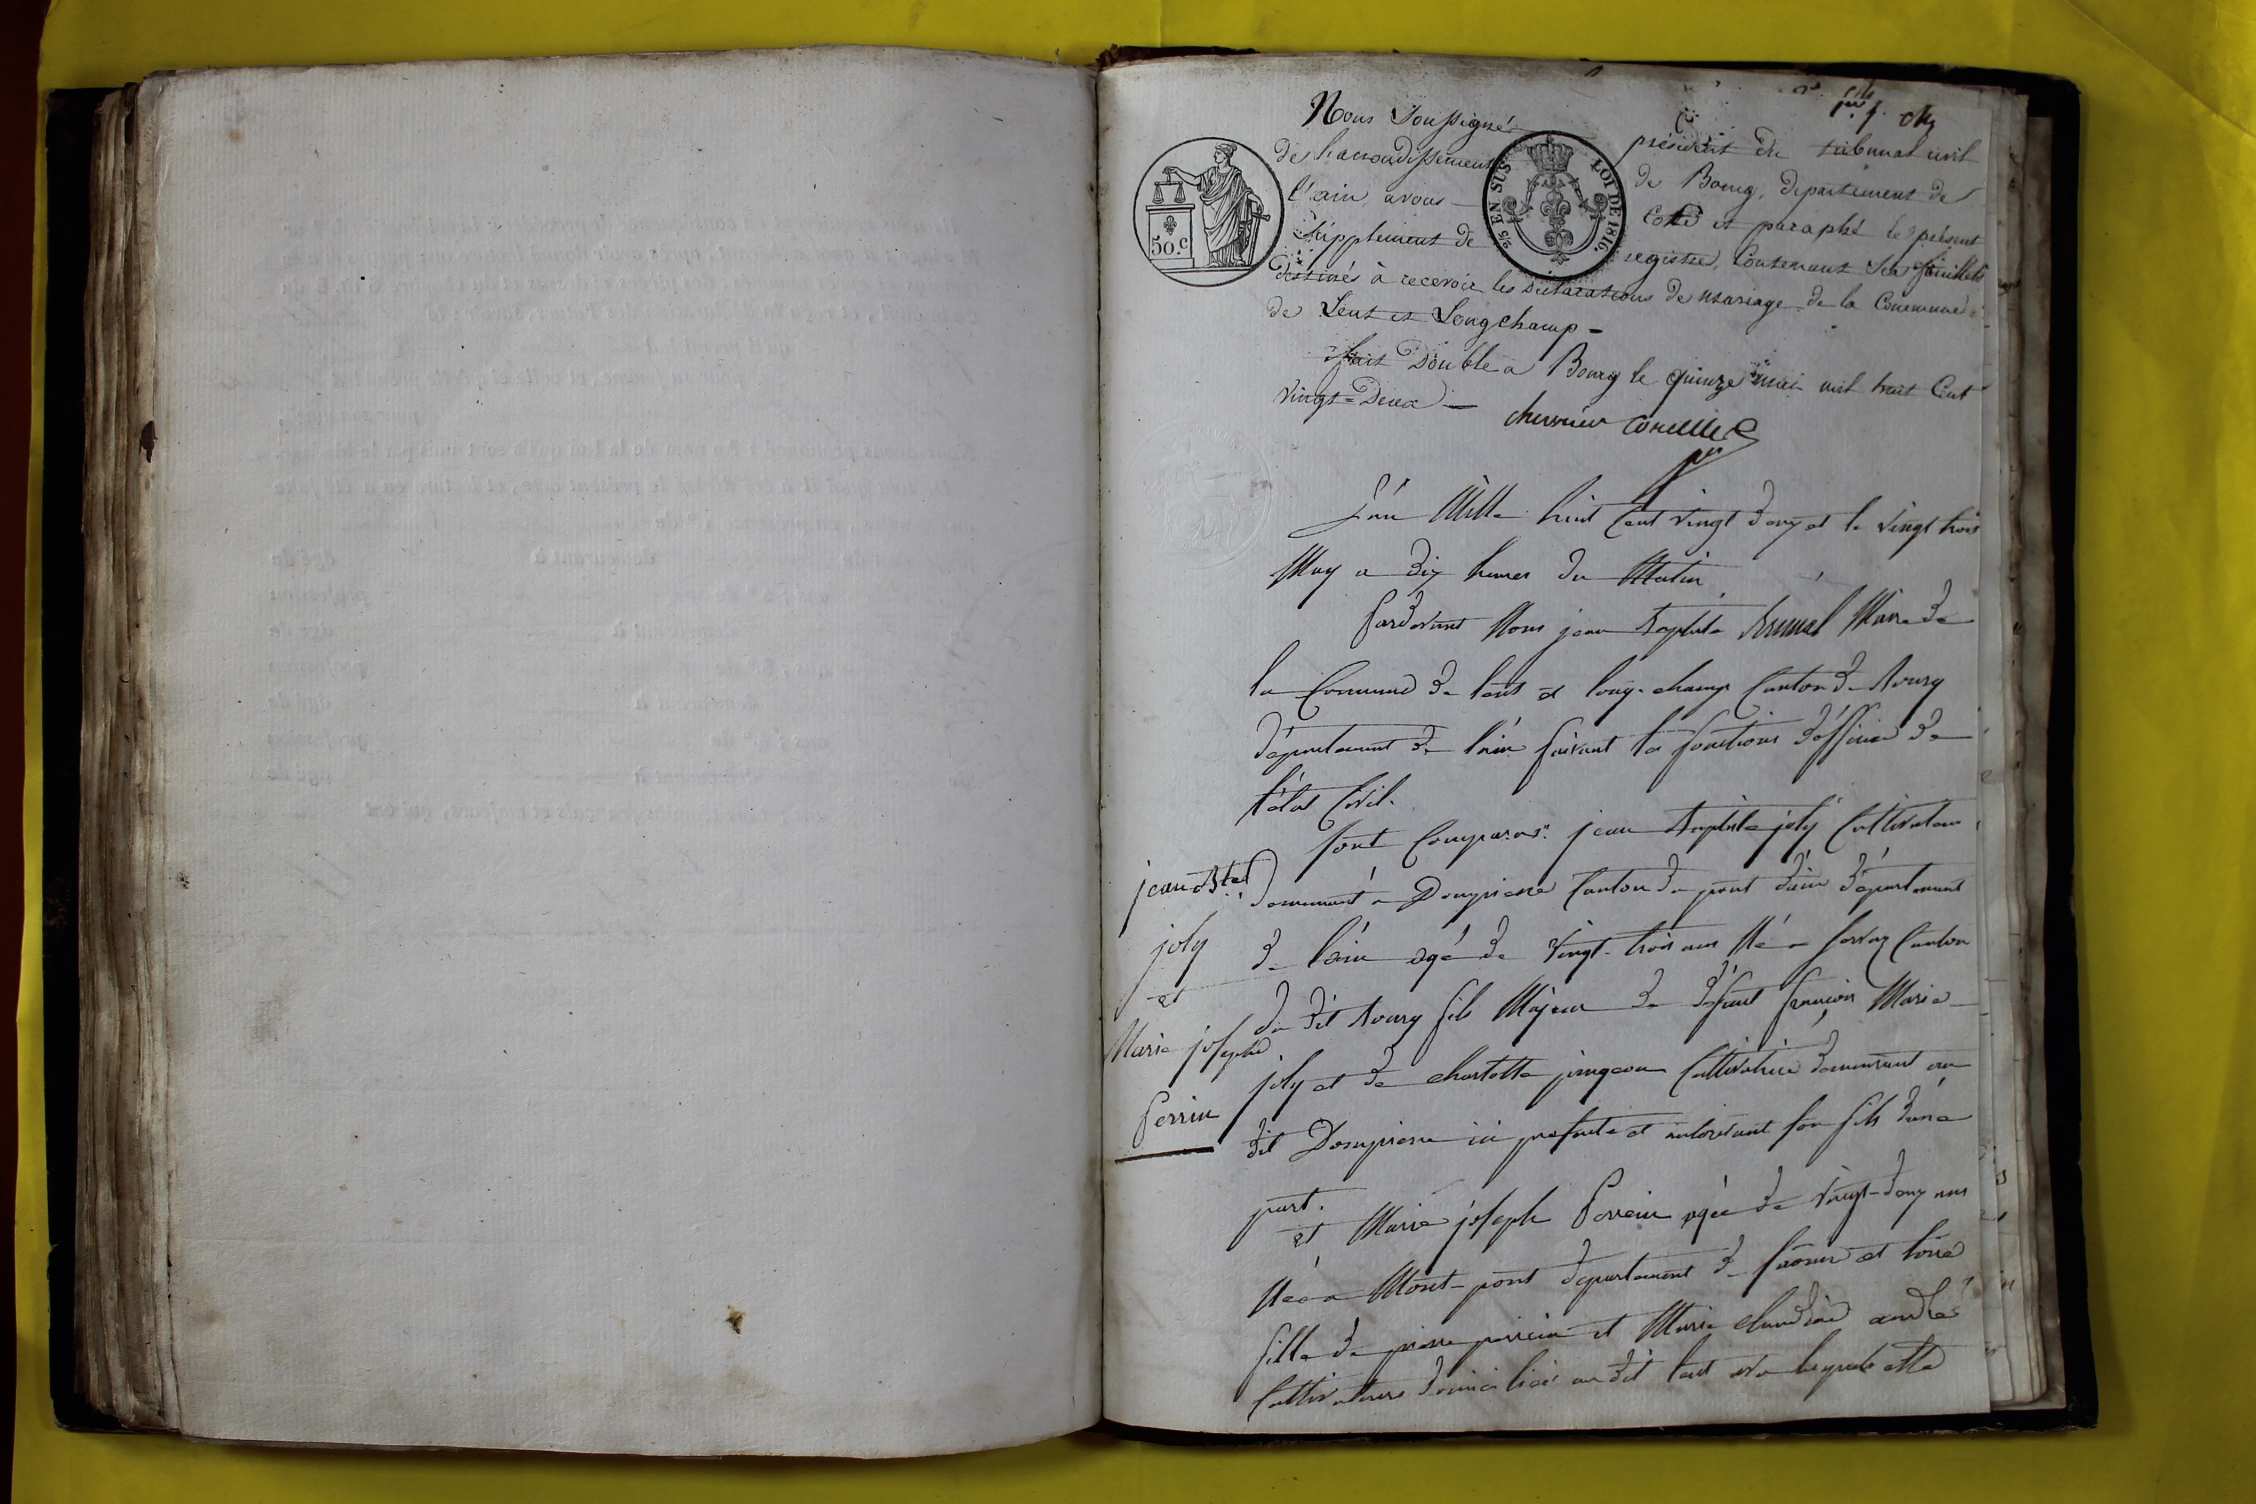 Nous soussigné président du tribunal civil
de l'arrondissement de Bourg, département de
l'ain, avons Coté et paraphé le présent
Supplement de registre, Contenant Six feuillets
destinés à recevoir les déclarations de mariage de la Commune
de Lent et Longchamp -
fait Double a Bourg le quinze mai mil huit Cent
Vingt-Deux -
50.c
2/5 EN SUS
LOI DE 1816.
L'an Mille huit Cent vingt deux et le vingt trois
May a dix heures du Matin
Pardevant Nous jean Baptiste Maire de
la Commune de lent et long-champ Canton de Bourg
département de l'ain faisant les fonctions d'officier de
l'état Civil.
sont Comparus jean Baptiste joly Cultivateur
demeurant a Dompierre Canton du pont d'ain département
de l'ain agé de vingt-trois ans Né a servaz Canton
du dit Bourg fils Majeur de défunt françois Marie
joly et de charlotte Cultivatrice demeurant au
dit Dompierre ici presente et autorisant son fils d'une
part.
et Marie joseph Perrin agée de vingt-deux ans
Née a Mont-pont departement de saone et loire
fille de pierre perrin et Marie claudine andré
Cultivateurs domiciliés au dit lent
jean Bte
joly
et
Marie josephe
Perrin